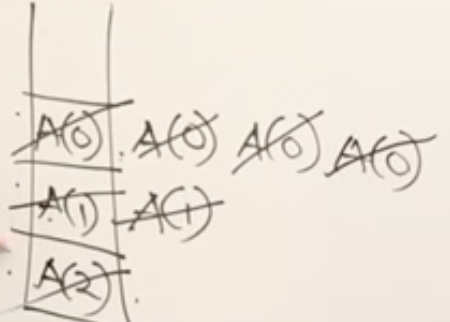 A(0) A(0) A(0) A(0)
A(1) A(1)
A(2)